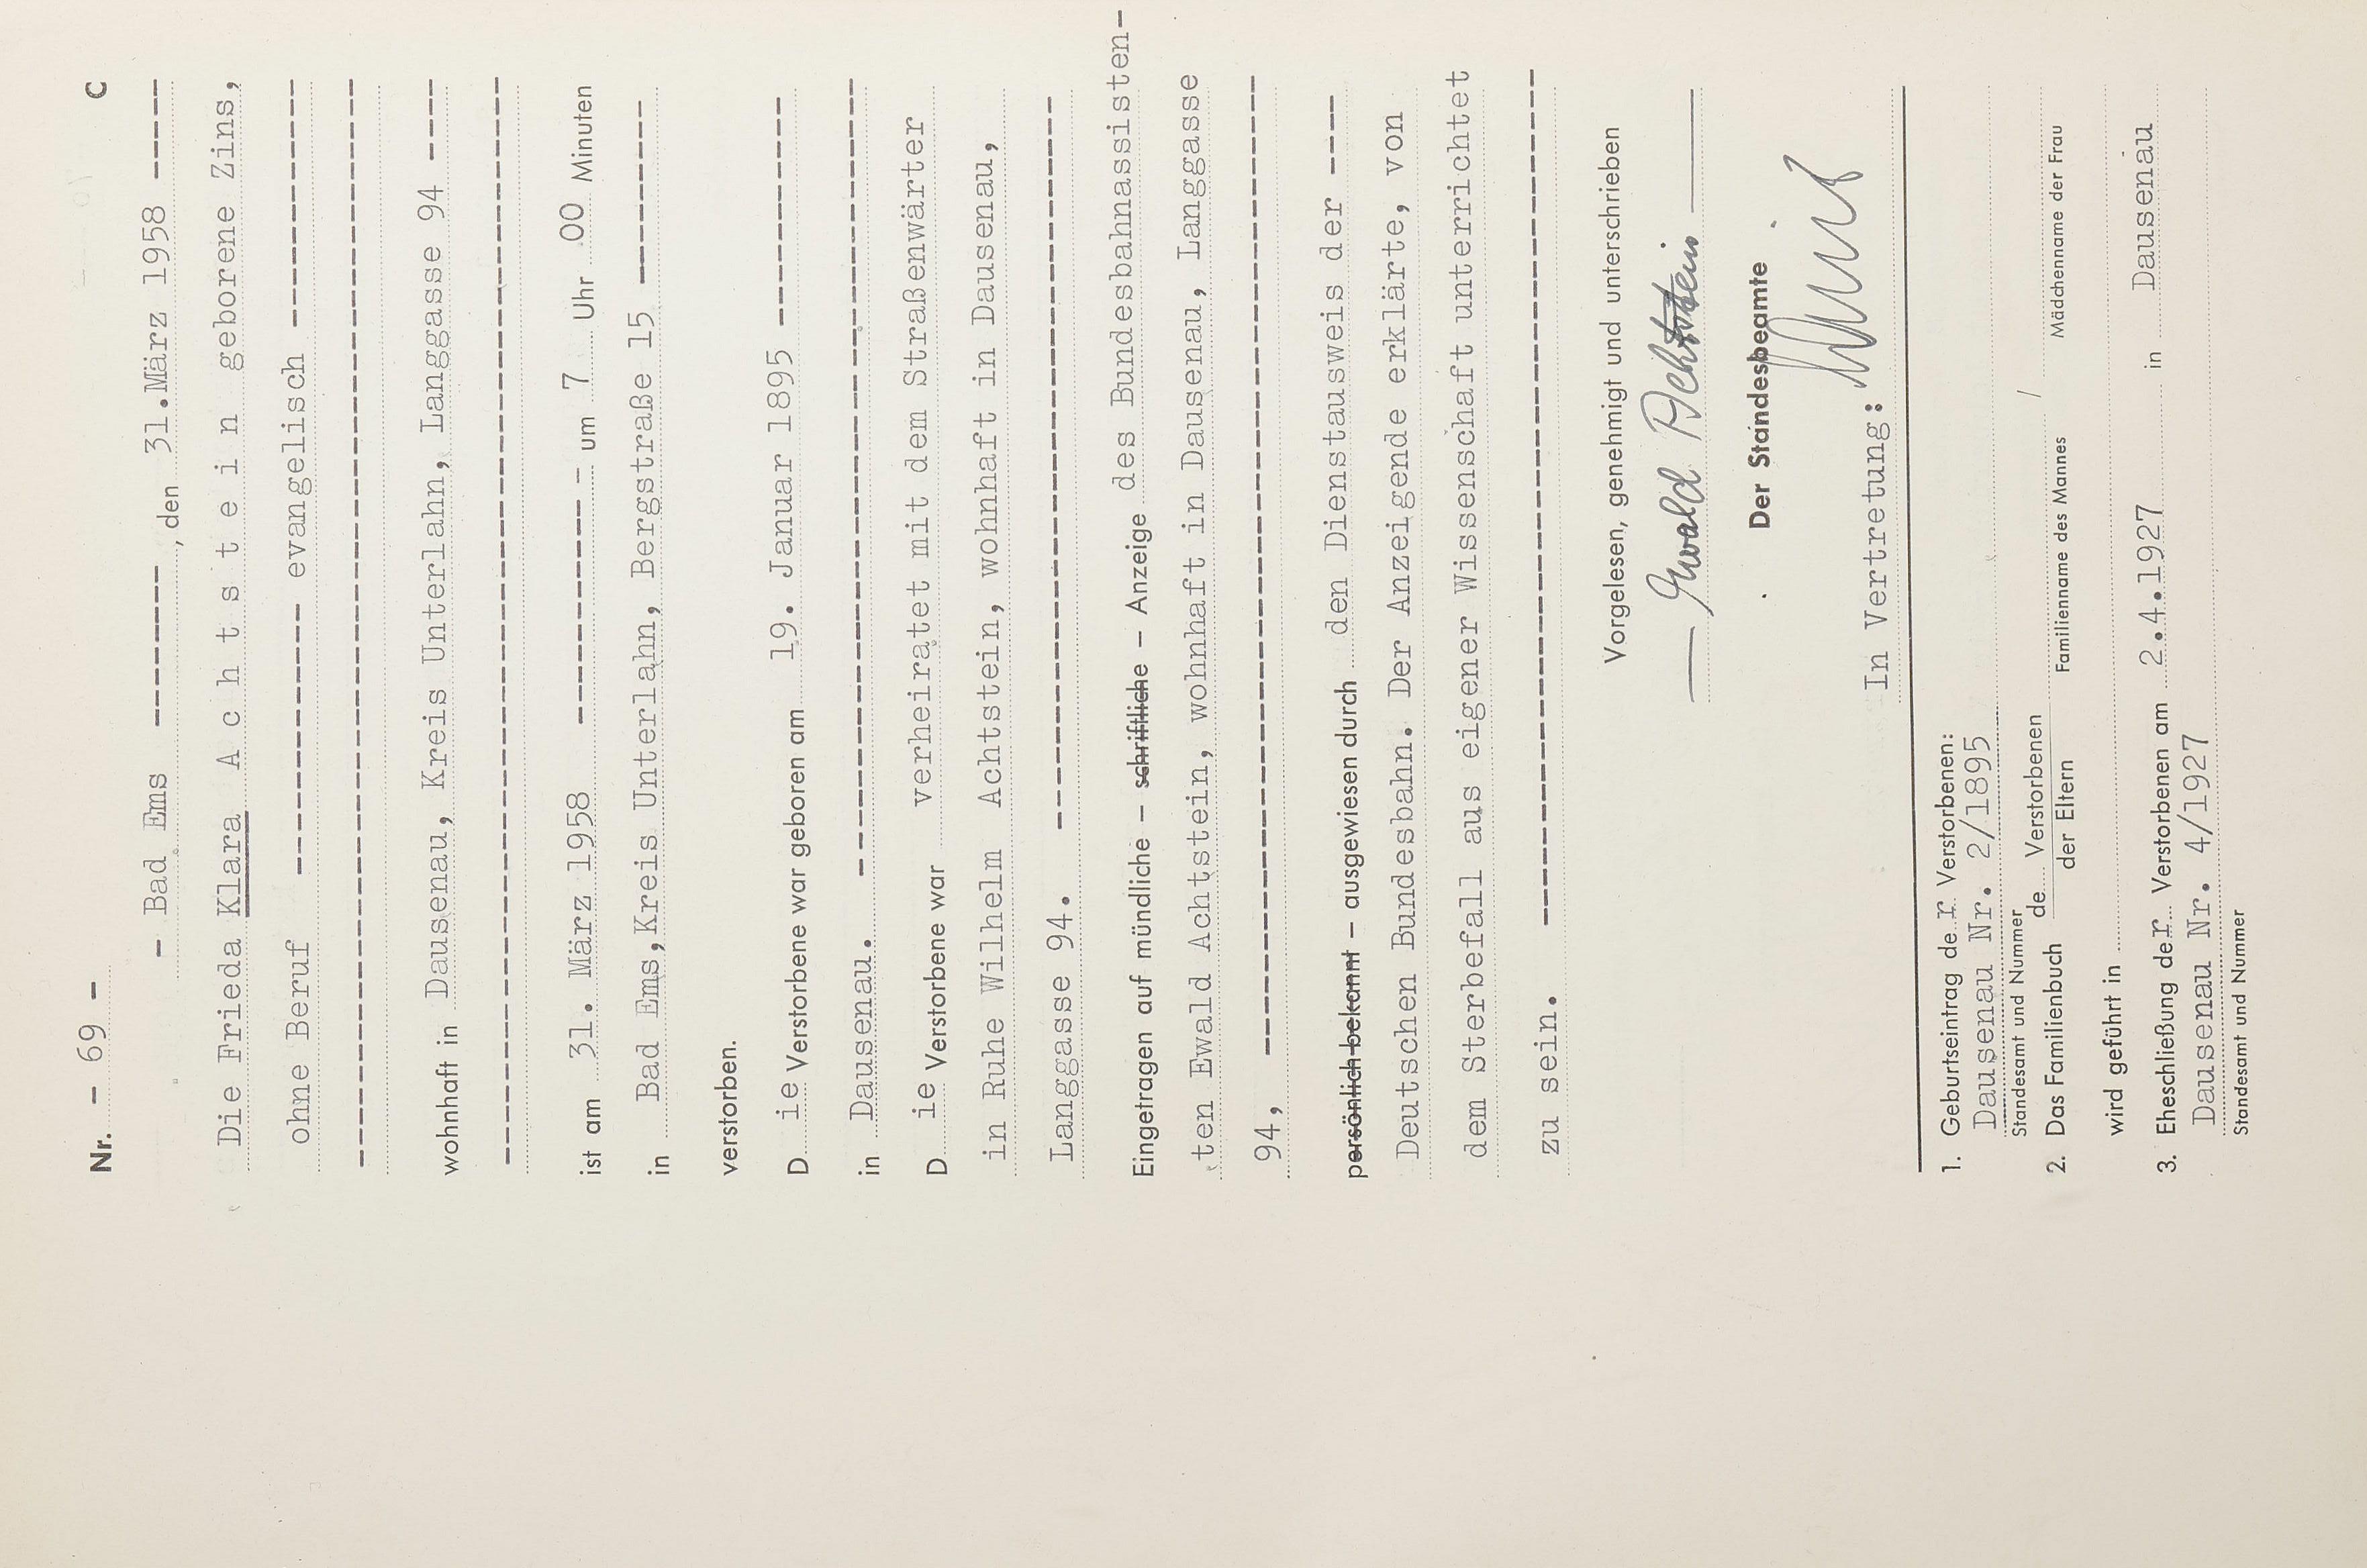 Nr. - 69 - C
- Bad Ems ----------, den 31.März 1958 -----
Die Frieda Klara A c h t s t e i n geborene Zins,
ohne Beruf ---------------- evangelisch ---------------
----------------------------------------------------------------
wohnhaft in Dausenau, Kreis Unterlahn, Langgasse 94 ----
----------------------------------------------------------------
ist am 31. März 1958 -------------- - um 7 Uhr 00 Minuten
in Bad Ems,Kreis Unterlahn, Bergstraße 15 -----------
verstorben.
D ie Verstorbene war geboren am 19. Januar 1895 --------------
in Dausenau. -----------------------------------------------
D ie Verstorbene war verheiratet mit dem Straßenwärter
in Ruhe Wilhelm Achtstein, wohnhaft in Dausenau,
Langgasse 94. -------------------------------------------
Eingetragen auf mündliche – schriftliche – Anzeige des Bundesbahnassisten-
ten Ewald Achtstein, wohnhaft in Dausenau, Langgasse
94, ---------------------------------------------------------
persönlich bekannt – ausgewiesen durch den Dienstausweis der -----
Deutschen Bundesbahn. Der Anzeigende erklärte, von
dem Sterbefall aus eigener Wissenschaft unterrichtet
zu sein. --------------------------------------------------
Vorgelesen, genehmigt und unterschrieben
— Ewald Achtstein —
Der Standesbeamte
In Vertretung:
1. Geburtseintrag de r Verstorbenen:
Dausenau Nr. 2/1895
Standesamt und Nummer
2. Das Familienbuch de Verstorbenen / der Eltern /
Familienname des Mannes Mädchenname der Frau
wird geführt in
3. Eheschließung der Verstorbenen am 2.4.1927 in Dausenau
Dausenau Nr. 4/1927
Standesamt und Nummer